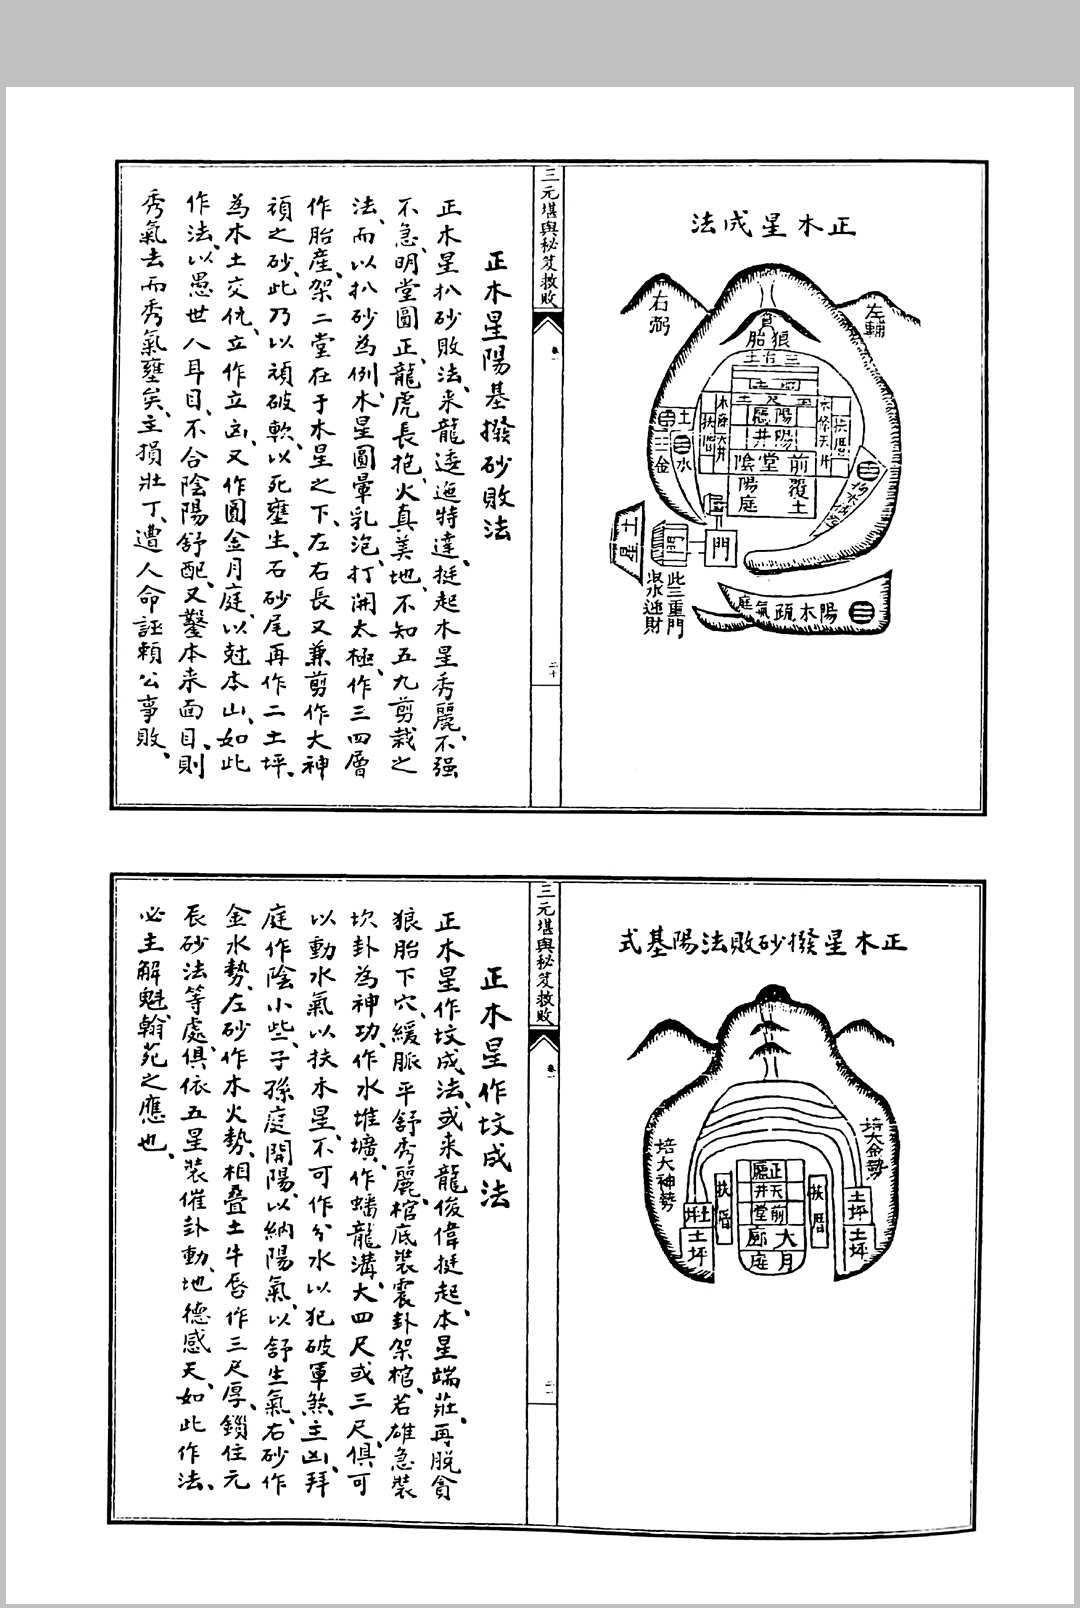 正木星成法
左輔
右弼
貪狼胎
三台土
陽廳
陽井
前堂陰
覆土
陽庭
扶厝
扶厝
木條天井
木條天井
土
水
金
門
門
土星
此三重門
収水迎財
陽木疏氣庭
三元堪輿秘笈救敗
卷一
二十
正木星陽基撥砂敗法
正木星扒砂敗法、來龍逶迤特達、挺起木星秀麗、不强
不急、明堂圓正、龍虎長抱、火真美地、不知五九剪裁之
法、而以扒砂為例、木星圓暈乳泡、打開太極、作三四層
作胎產、架二堂在于木星之下、左右長又兼剪作大神
頑之砂、此乃以頑破軟、以死壅生、石砂尾再作二土坪、
為木土交仇、立作立凶、又作圓金月庭、以尅本山、如此
作法、以愚世人耳目、不合陰陽舒配、又鑿本來面目、則
秀氣去而秀氣壅矣、主損壯丁、遭人命誣賴公事敗、
正木星撥砂敗法陽基式
培大金勢
培大神勢
正廳
天井
前堂
大廊
月庭
扶厝
扶厝
土坪
土坪
土坪
土坪
三元堪輿秘笈救敗
卷一
二一
正木星作坟成法
正木星作坟成法、或來龍俊偉挺起、本星端莊、再脱貪
狼胎下穴、緩脈平舒秀麗、棺底裝震卦架棺、若雄急裝
坎卦為神功、作水堆壙、作蟠龍溝、大四尺或三尺、俱可
以動水氣以扶木星、不可作分水以犯破軍煞、主凶、拜
庭作陰小些、子孫庭開陽、以納陽氣、以舒生氣、右砂作
金水勢、左砂作木火勢、相叠土牛唇作三尺厚、鎖住元
辰砂法等處、俱依五星裝催卦動、地德感天、如此作法、
必主解魁翰苑之應也、